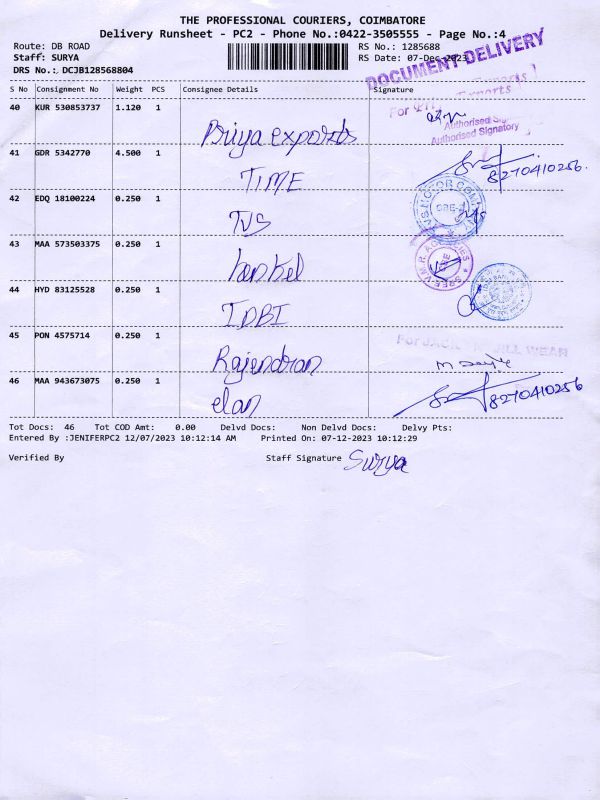 THE PROFESSIONAL COURIERS, COIMBATORE
Delivery Runsheet - PC2 - Phone No.:0422-3505555 - Page No.:4
Route: DB ROAD
RS No.: 1285688
Staff: SURYA
RS Date: 07-Dec-2023
DRS No.: DCJB128568804
DOCUMENT DELIVERY
S No Consignment No Weight PCS Consignee Details Signature
40 KUR 530853737 1.120 1 Priya exports
For
Exports
Authorised Signatory
Authorised Signatory
41 GDR 5342770 4.500 1 TIME 8270410256.
42 EDQ 18100224 0.250 1 TVS
43 MAA 573503375 0.250 1 henkel
44 HYD 83125528 0.250 1 IDBI
45 PON 4575714 0.250 1 Rajendran
For JACK JILL WEAR
46 MAA 943673075 0.250 1 elan 8270410256
Tot Docs: 46 Tot COD Amt: 0.00 Delvd Docs: Non Delvd Docs: Delvy Pts:
Entered By :JENIFERPC2 12/07/2023 10:12:14 AM Printed On: 07-12-2023 10:12:29
Verified By Staff Signature Surya